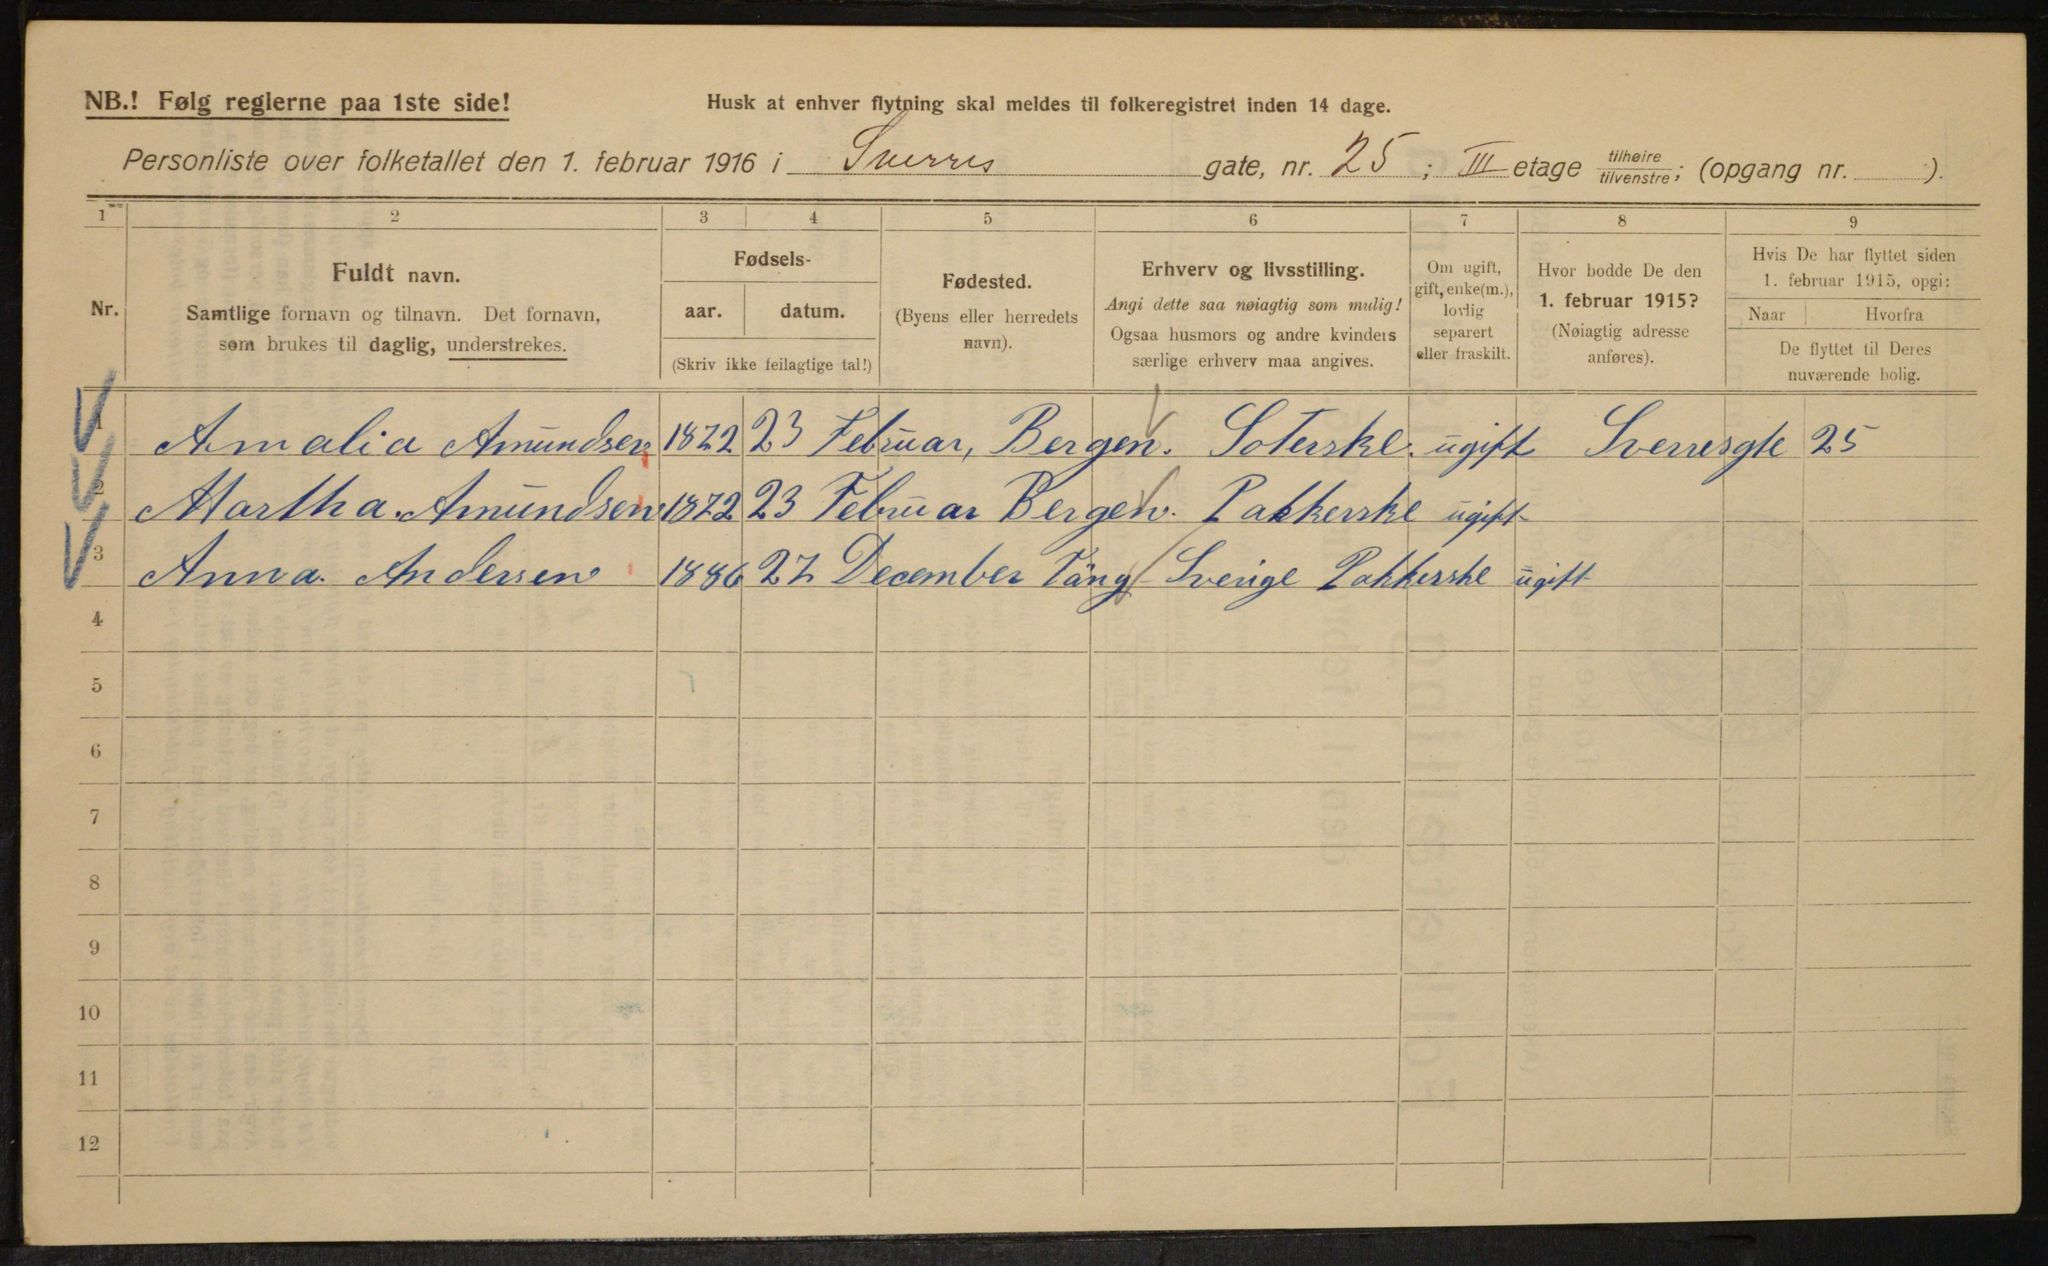 NB.! Følg reglerne paa 1ste side!
Husk at enhver flytning skal meldes til folkeregistret inden 14 dage.
Personliste over folketallet den 1. februar 1916 i Sverres gate, nr. 25 ; III etage tilhøire tilvenstre; (opgang nr. ).
1 2 3 4 5 6 7 8 9
Nr.
Fuldt navn.
Samtlige fornavn og tilnavn. Det fornavn,
som brukes til daglig, understrekes.
Fødsels-
aar. datum.
(Skriv ikke feilagtige tal!)
Fødested.
(Byens eller herredets
navn).
Erhverv og livsstilling.
Angi dette saa nøiagtig som mulig!
Ogsaa husmors og andre kvinders
særlige erhverv maa angives.
Om ugift,
gift, enke(m.),
lovlig
separert
eller fraskilt.
Hvor bodde De den
1. februar 1915?
(Nøiagtig adresse
anføres).
Hvis De har flyttet siden
1. februar 1915, opgi:
Naar Hvorfra
De flyttet til Deres
nuværende bolig.
1 Amalia Amundsen 1872 23 Februar, Bergen. Soterske. ugift Sverresgte 25
2 Martha. Amundsen 1872 23 Februar Bergen. Pakkerske ugift
3 Anna. Andersen 1886 27 December Täng Sverige Pakkerske ugift
4
5
6
7
8
9
10
11
12